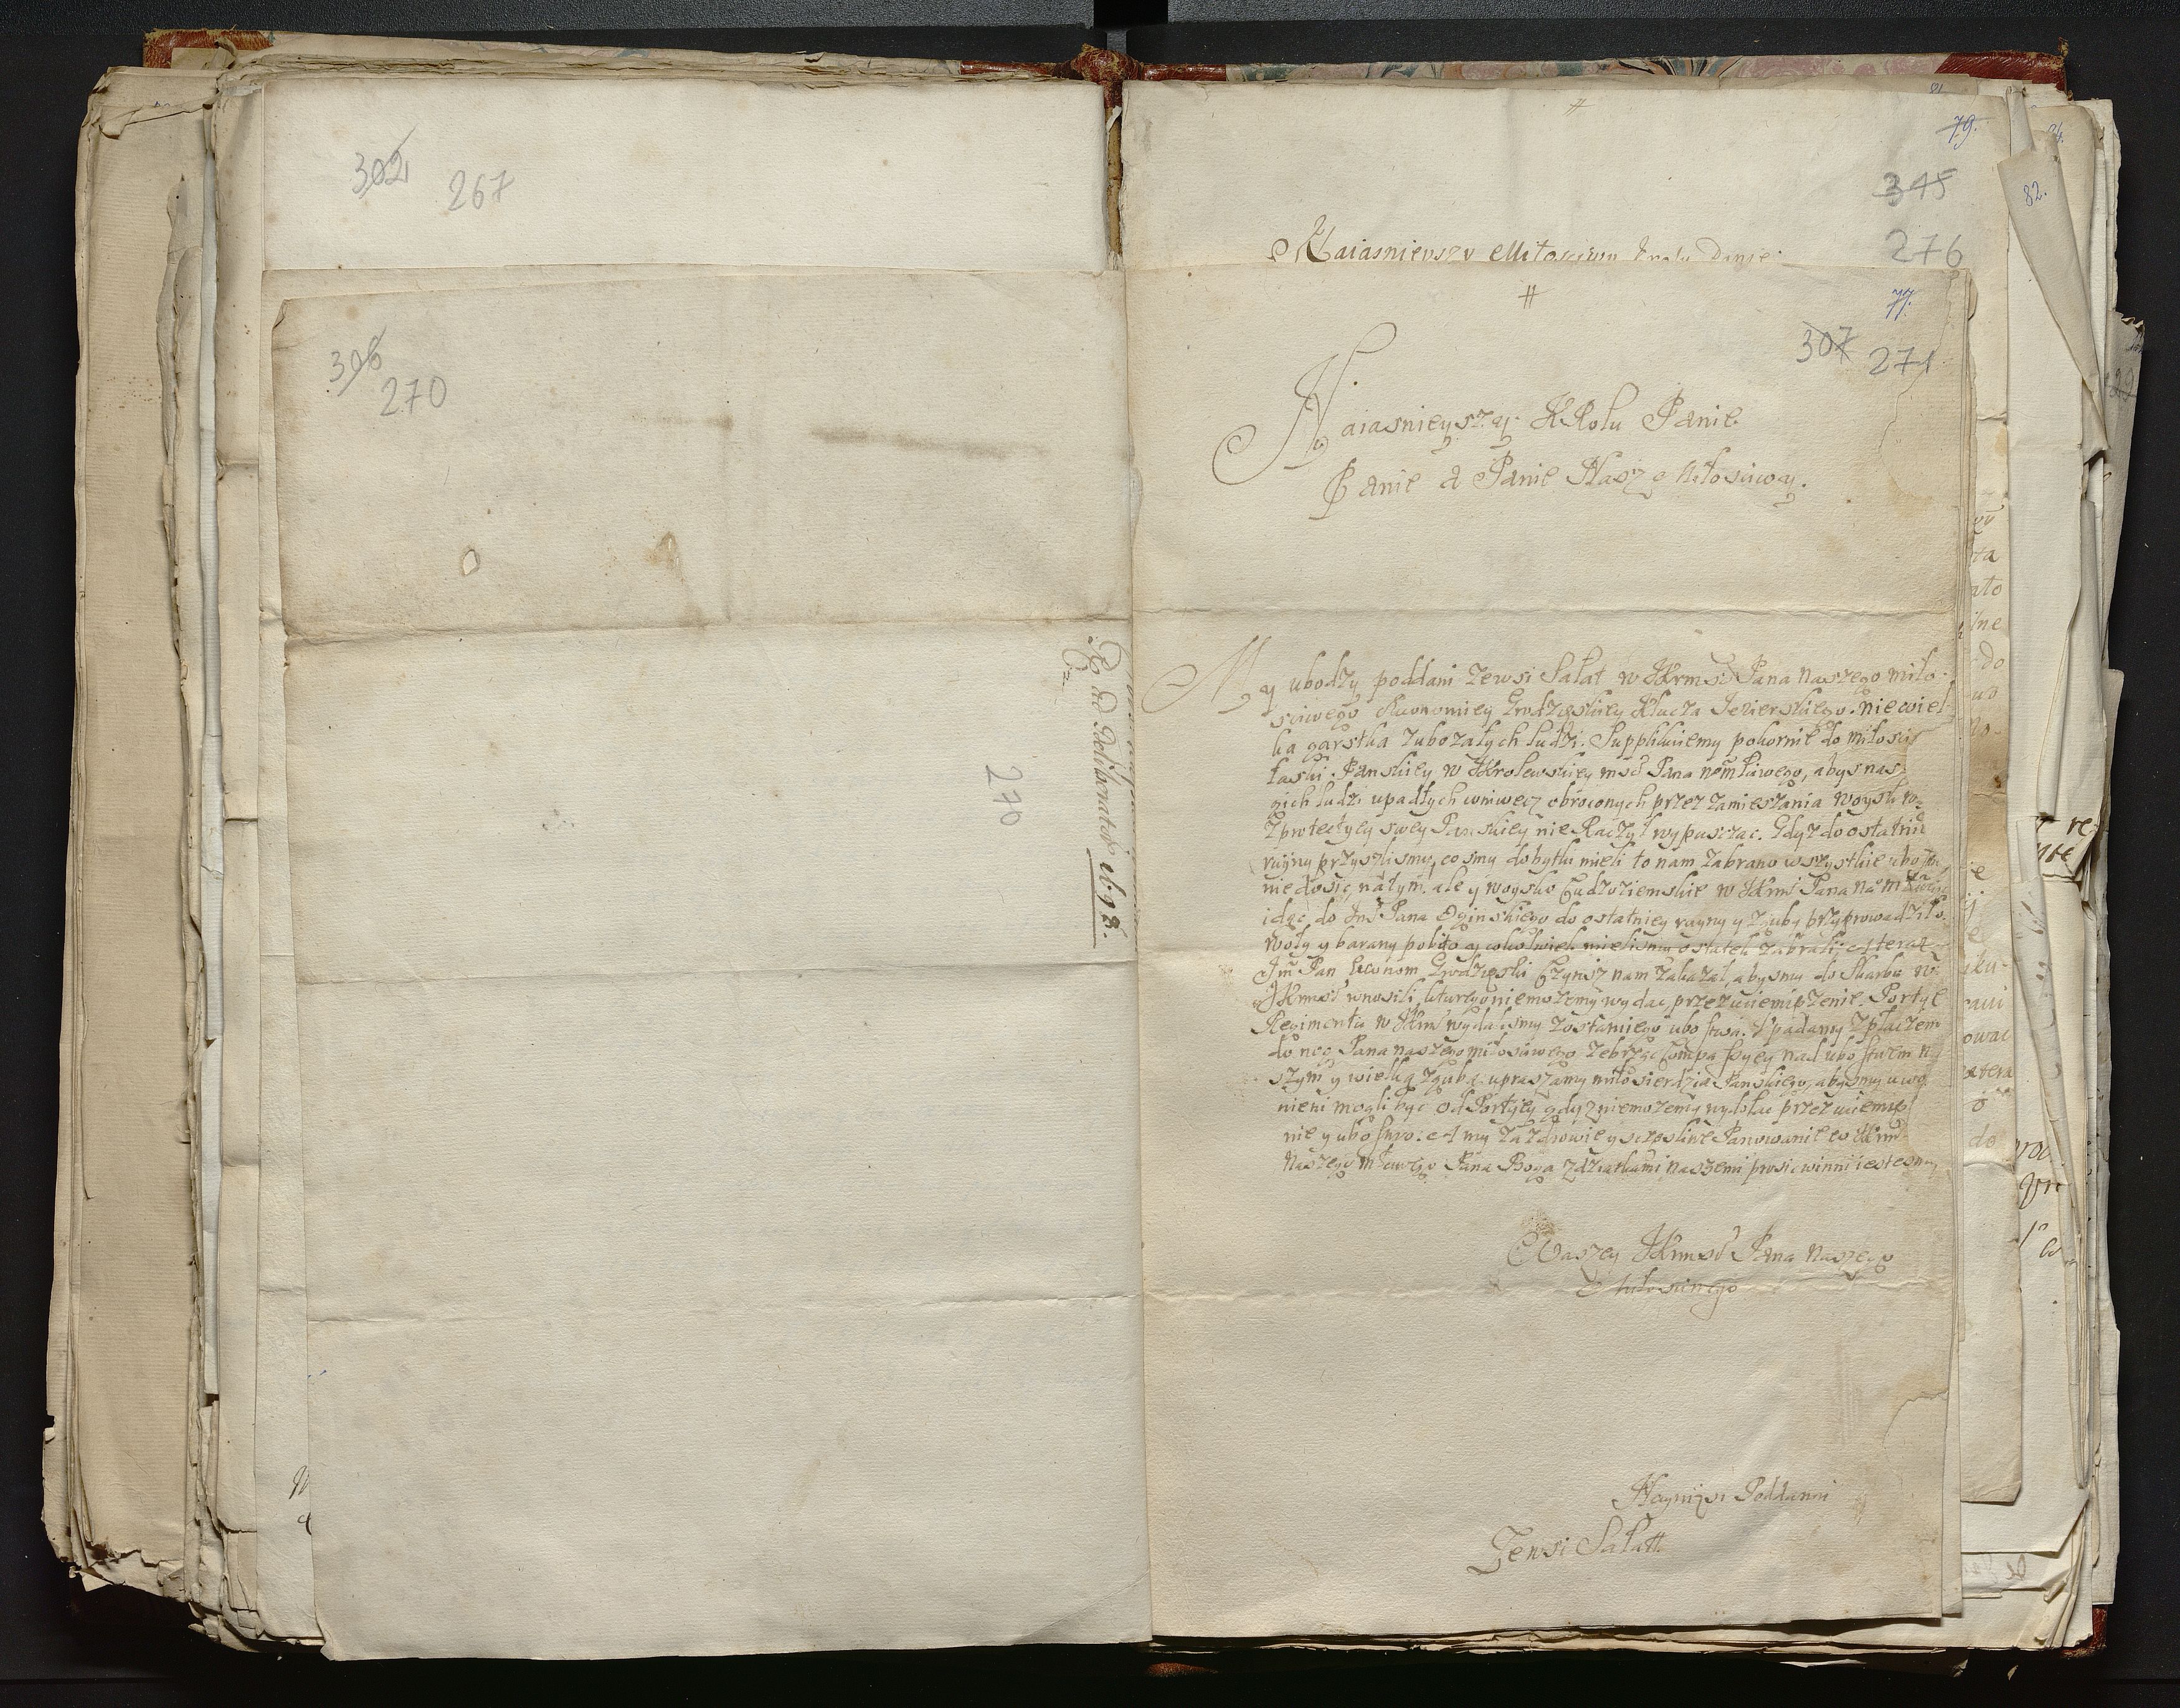 302 267
306
270
Ex ad Deliberatos 1698.
270
79.
345
276
Naiasnieyszy Miłosciwy Krolu Panie
82.
77.
307 271
Naiasnieyszy KRolu Panie
Panie a Panie Nasz Miłosciwy.
My ubodzy poddani zewsi Sałat w JKrmsci Pana Naszego miło-
sciwego Ekonomiey Grodzęskiey Klucza Jezierskiego. niewiel
ka garstka zubozałych ludzi. Supplikuiemy pokornie do miłosci
łaski Panskiey w JKrolewskiey msci Pana nm łciwego, abys nas
gich ludzi upadłych wniwecz obroconych przez zamieszania woysko
z protectyey swey Panskiey nie Raczył wypuszczac. Gdyz do ostatnie
ruyny przyszlismy, co smy dobytku mieli to nam zabrano wszystkie ubo
nie dosię natym. ale y woysko Cudzoziemskie w JKrmsci Pana na m
idąc do Jmsci Pana Oginskiego do ostatniey ruyny y zguby przyprowadziło.
Woły y barany pobito y cokolwiek mielismy ostatek zabrali. a teraz
Jm Pan Econom Grodzęski Czynsz nam zakazał, abysmy do Skarbu w
JKrmsci wnosili, kturego niemozemy wydac, przez uciemięzenie. Portye
Regimentu w JKrmsci wydalismy zostaniego ubostwa. Upadamy z płaczem
do nog Pana naszego miłosciwego zebrząc Compassyey nad ubostwem n
szym y wielką zgubą upraszamy miłosierdzia Panskiego, abysmy uwo
nieni mogli byc od Portyey gdyz niemozemy wydołac przez uciemię
nie y ubostwo. A my za zdrowie y szczesliwe Panowanie w JKrm
Naszego młciwego Pana Boga zdziatkami naszemi prosic winni iestesmy
Waszey JKrmsci Pana Naszego
Miłosciwego
Naynizsi Poddanni
Zewsi Sałatt